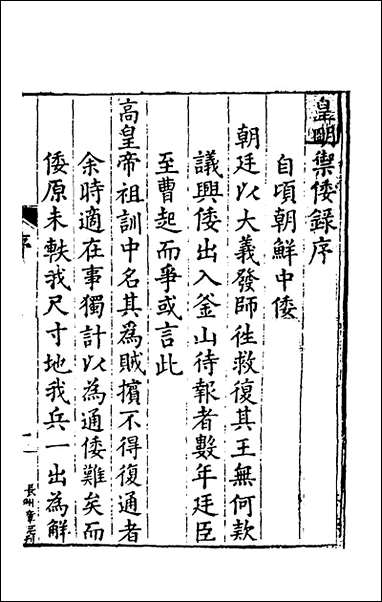 皇明禦倭錄序
自頃朝鮮中倭
朝廷以大義發師徃救復其王無何款
議興倭出入釜山待報者數年廷臣
至曹起而爭或言此
高皇帝祖訓中名其為賊擯不得復通者
余時適在事獨計以為通倭難矣而
倭原未軼我尺寸地我兵一出為解
序
一
長州章